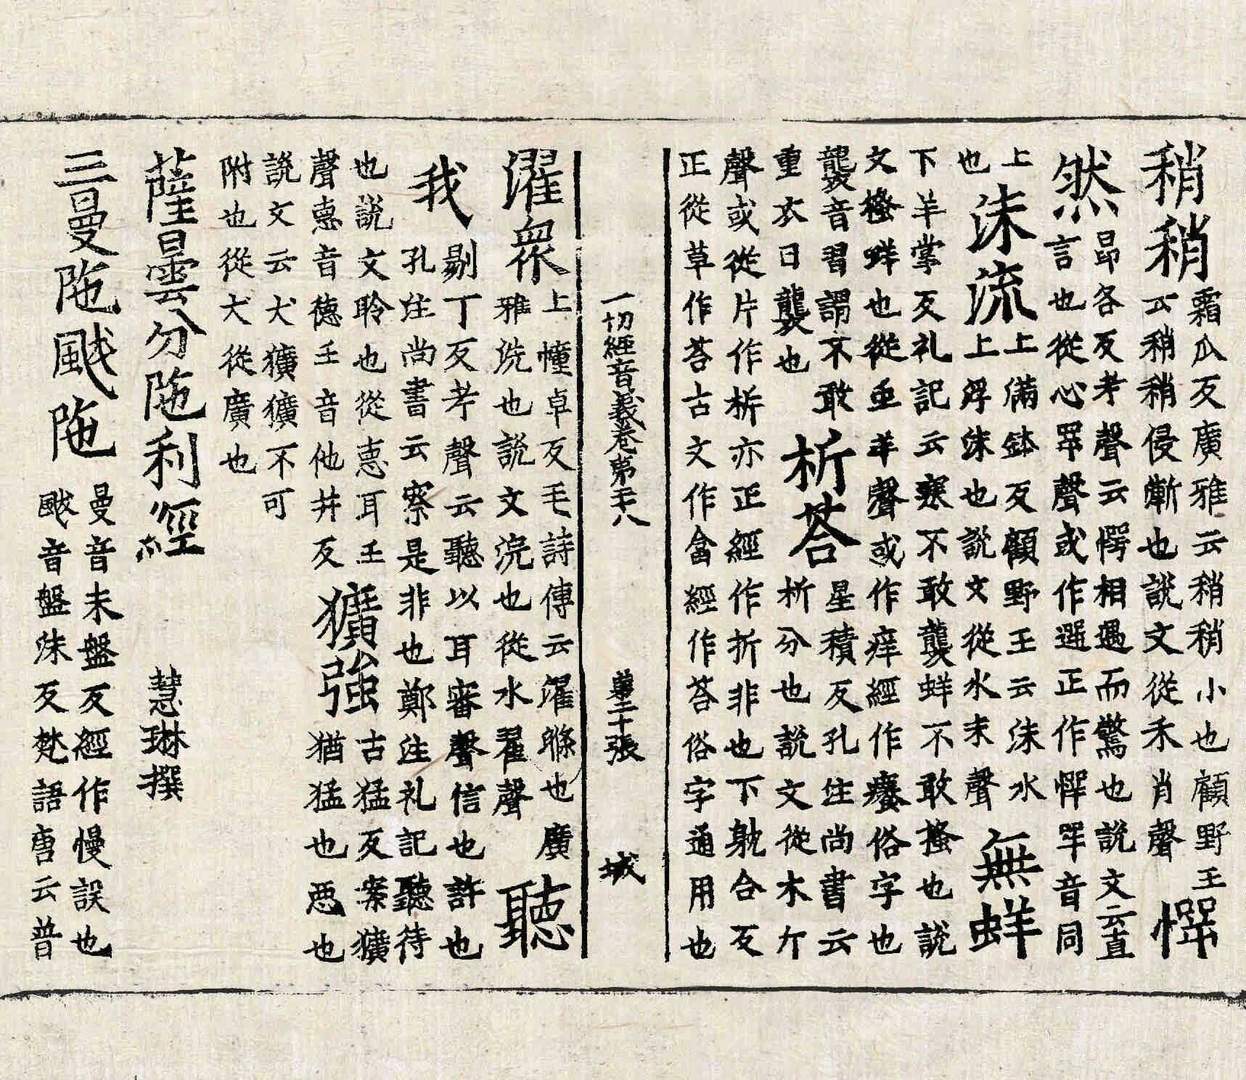 稍稍
霜爪反廣雅云稍稍小也顧野王
云稍稍侵漸也說文從禾肖聲
愕
然
昂各反考聲云愕相遇而驚也說文云直
言也從心咢聲或作遻正作㦍咢音同
上
也
沫流
上滿鉢反顧野王云沫水
上浮沫也說文從水末聲
無蛘
下羊掌反礼記云寒不敢襲蛘不敢搔也說
文搔蛘也從虫羊聲或作痒經作癢俗字也
襲音習謂不敢
重衣曰襲也
析荅
星積反孔注尚書云
析分也說文從木斤
聲或從片作㸞亦正經作折非也下躭合反
正從草作荅古文作畣經作荅俗字通用也
一切經音義卷第十八
第二十張
城
濯衆
上憧卓反毛詩傳云濯滌也廣
雅洗也說文浣也從水翟聲
聽
我
剔丁反考聲云聽以耳審聲信也許也
孔注尚書云察是非也鄭注礼記聽待
也說文聆也從悳耳𡈼
聲悳音德𡈼音他井反
獷強
古猛反案獷
猶猛也悪也
說文云犬獷獷不可
附也從犬從廣也
薩曇分陁利經
慧琳撰
三曼陁颰陁
曼音未盤反經作慢誤也
颰音盤沫反梵語唐云普